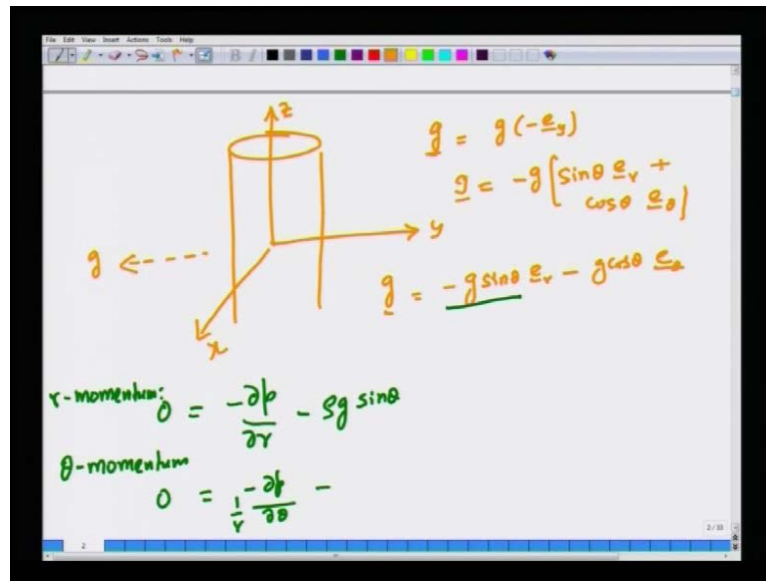 File Edit View Insert Actions Tools Help
z
y
x
g
g = g(-e_y)
g = -g[sinθ e_r +
cosθ e_θ]
g = -g sinθ e_r - g cosθ e_θ
r-momentum:
0 = -∂p/∂r - ρg sinθ
θ-momentum
0 = 1/r -∂p/∂θ -
2
2/10